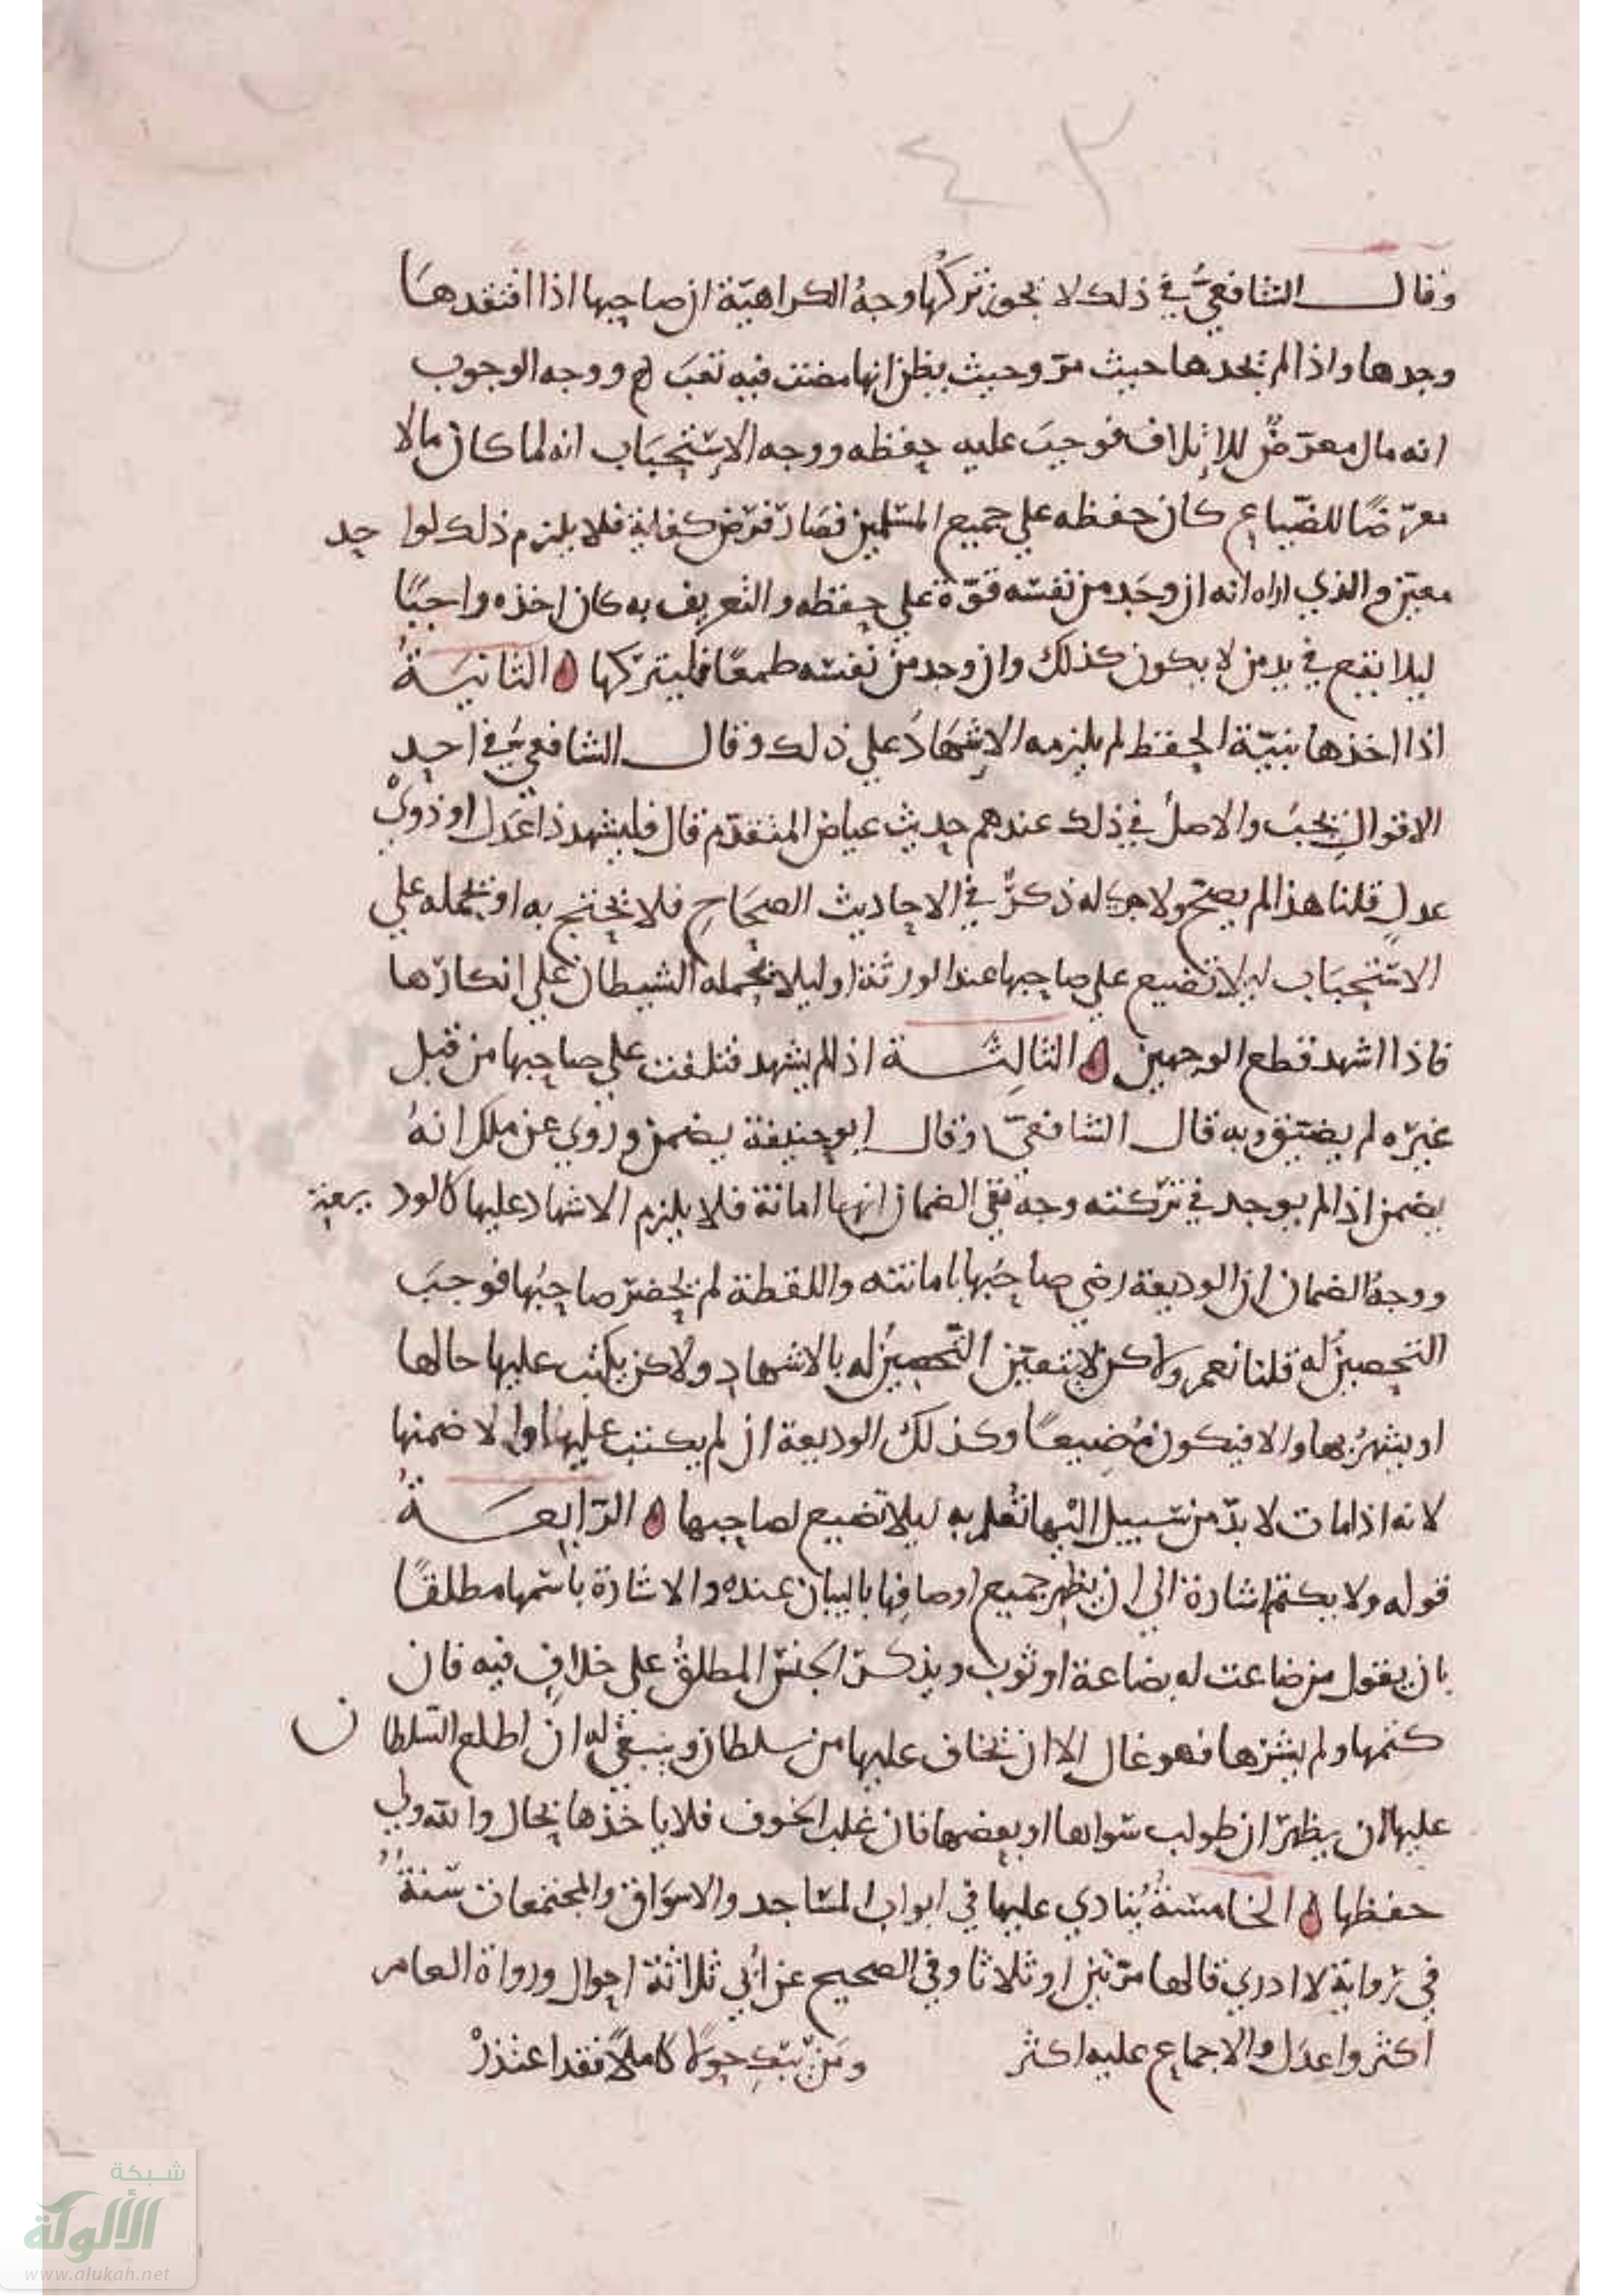 ٤٢
وقال الشافعيُّ في ذلك لا يجوز تركُها وجهُ الكراهيّة ان صاحبها اذا افتقدها
وجدها واذا لم يجدها حيث مرّ وحيث يظن انها مضت فيه تعَبَ لم ووجه الوجوب
انه مال معرّضٌ للإتلاف فوجبَ عليه حفظه ووجه الإستحبَاب انه لما كان مالا
معرّضًا للضّياع كان حفظه علي جميع المسلمين فصَار فرض كفاية فلا يلزم ذلك لواحد
معيّن والذي اراه انه ان وجَد من نفسه قوّة علي حفظه والتعريف به كان اخذه واجبًا
ليلا يقع في يد من لا يكون كذلك وان وجد من نفسه طمعًا فليتركها الثانيَةُ
اذا اخذها بنيّة الحفظ لم يلزمه الإشهَادُ علي ذلك وقال الشافعيُّ في احد
الاقوال يجبُ والاصلُ في ذلك عندهم حديث عياض المتقدّم قال فليشهد ذا عَدل او ذويْ
عدلٍ قلنا هذا لم يصح ولا جرى له ذكرٌ في الاحاديث الصحَاح فلا يحتج به او نحمله علي
الاستحبَاب ليلا تضيع علي صاحبها عند الورثة او ليلا يحمله الشيطان علي انكارها
فاذا اشهد قطع الوجهين الثالِثَة اذا لم يشهد فتلفت علي صاحبها من قبل
غيره لم يضمن وبه قال الشافعيّ وقال ابو حنيفة يضمن وروي عن ملك انهُ
يضمن اذا لم يوجد في تركته وجه نفي الضمان انها امانة فلا يلزم الاشهاد عليها كالوديعة
ووجهُ الضمان ان الوديعة رضي صاحبُها بامانته واللقطة لم يحضر صاحبُها فوجبَ
التحصينُ له قلنا نعم ولاكن لا يتعيّن التّحصينُ له بالاشهاد ولاكن يكتب عليها حالها
او يشهرُ بها والا فيكون مُضِيعًا وكذلك الوديعة ان لم يكتب عليها والا ضمنها
لانه اذا مات لا بدّ من سبيل اليْها تُعلم به ليلا تضيع لصاحبها الرّابعَةُ
قوله ولا يكتم اشارة الي ان يظهر جميع اوصافِها بالبيان عنده والاشارة باسْمها مطلقًا
بان يقول من ضاعت له بضاعة او ثوب ويذكر الجنسَ المطلقُ على خلافٍ فيه فان
كتمها ولم ينشرها فهو غال الا ان يخاف عليها من سلطان وينبغي له ان اطلع السلطان
عليها ان يظهر ان طولب سوابها او بعضها فان غلب الخوف فلا ياخذها بحال والله ولي
حفظها الخامسَةُ يُنادي عليها في ابواب المسَاجد والاسوَاق والمجتمعات سَنةً
في روايةٍ لا ادري قالها مرّتين او ثلاثا وفي الصحيح عن اُبَي ثلاثة احوال ورواة العام
اكثر واعدَل والاجماع عليه اكثر ومَن حولًا كاملًا فقد اعتذرْ
شبكة
الألوكة
www.alukah.net